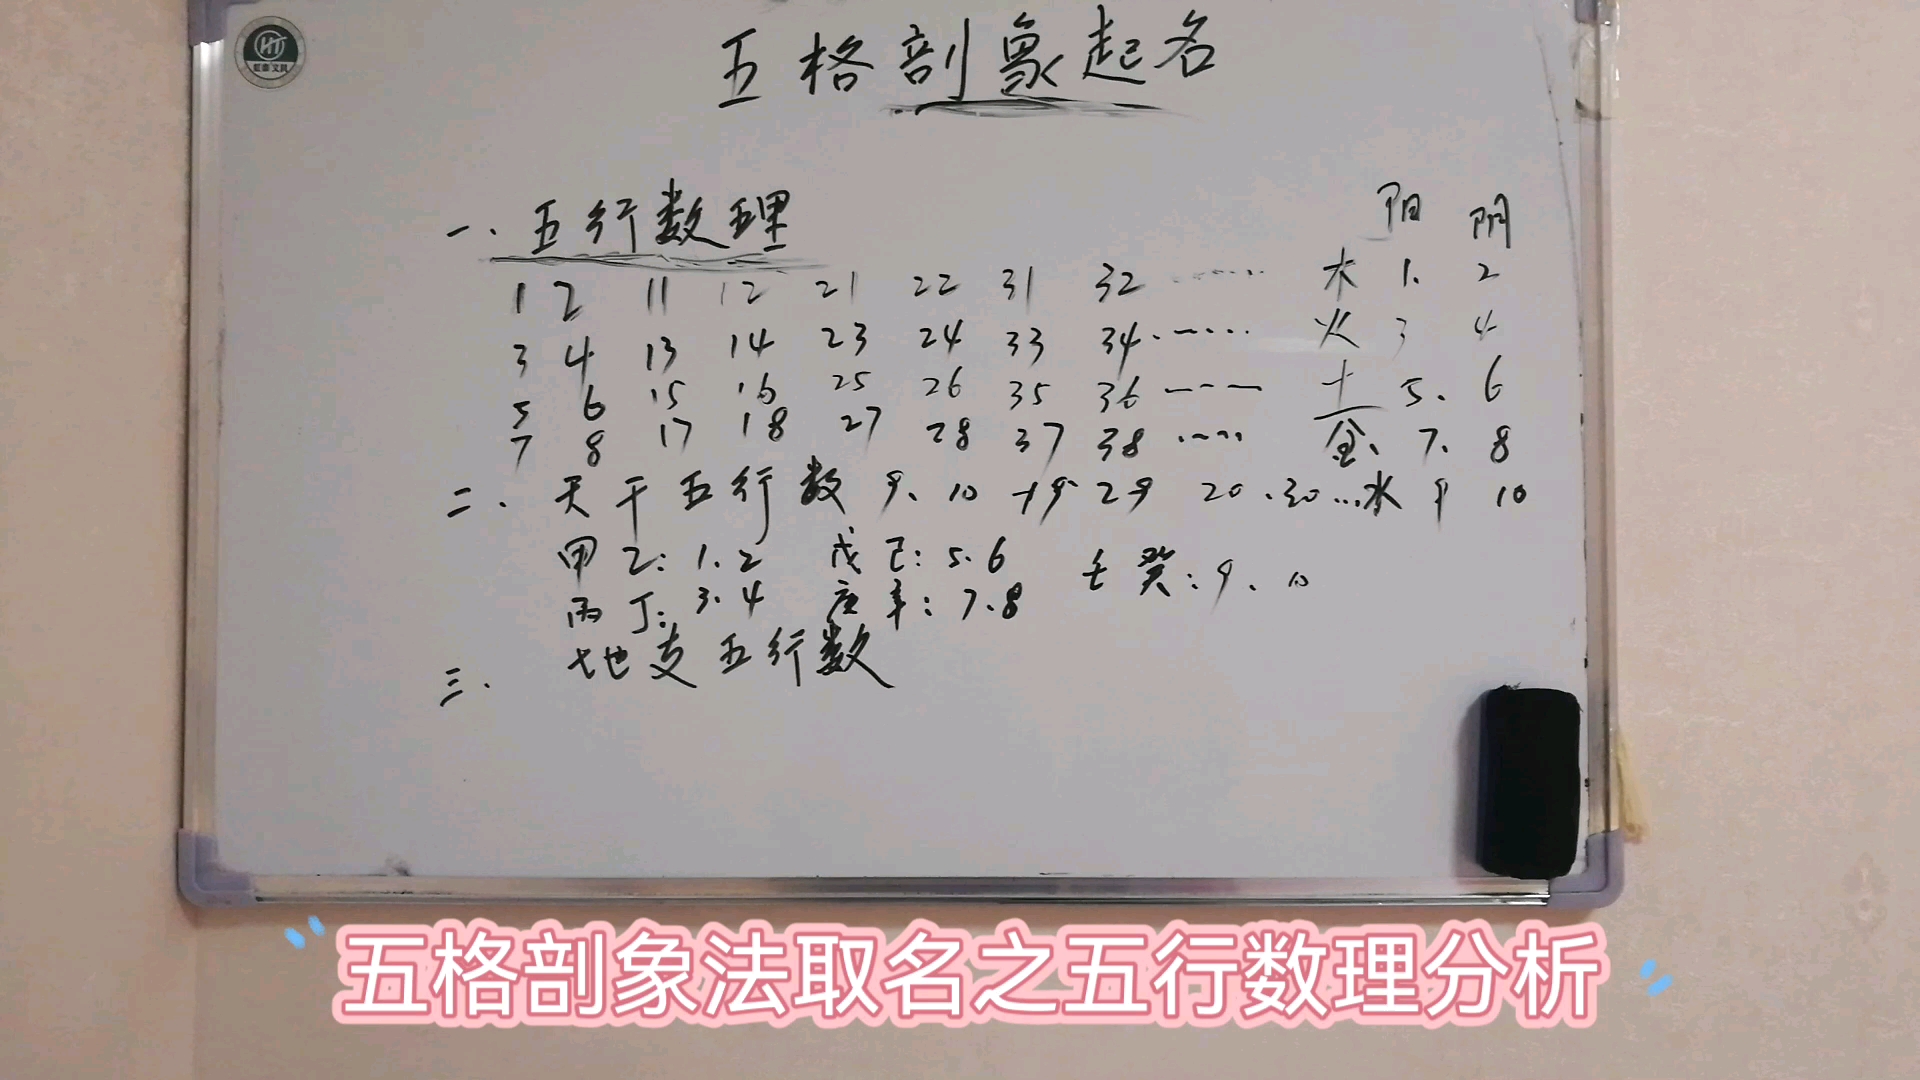 HT
五格剖象起名
阳 阴
一、五行数理
1 2 11 12 21 22 31 32 …… 木 1. 2
3 4 13 14 23 24 33 34 …… 火 3 4
5 6 15 16 25 26 35 36 …… 土 5. 6
7 8 17 18 27 28 37 38 …… 金、7. 8
二、天干五行数 9、10 19 29 20.30…水 9 10
甲乙:1.2 戊己:5.6 壬癸:9、10
丙丁:3.4 庚辛:7.8
三、地支五行数
五格剖象法取名之五行数理分析